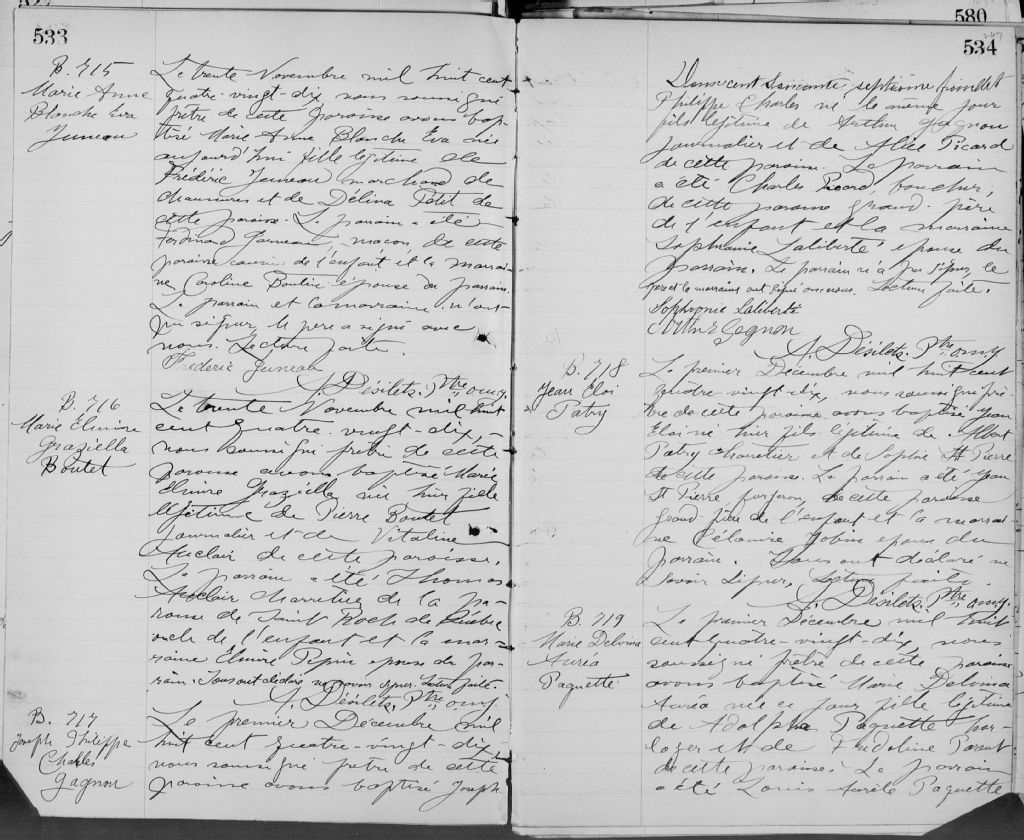 580
533
B. 715
Marie Anne
Blanche Eva
Juneau
Le trente Novembre mil huit cent
quatre-vingt-dix nous soussigné
prêtre de cette paroisse avons bap-
tisé Marie Anne Blanche Eva née
aujourd'hui fille légitime de
Frédéric Juneau marchand de
chaussures et de Délina Petit de
cette paroisse. Le parrain a été
Ferdinand Juneau, maçon, de cette
paroisse cousin de l'enfant et la marrai-
ne Caroline Boutin épouse du parrain.
Le parrain et la marraine n'ont
pu signer, le père a signé avec
nous. Lecture faite.
Frédéric Juneau
A. Désilets. Ptre
B. 716
Marie Elmire
Graziella
Boutet
Le trente Novembre mil huit
cent quatre-vingt-dix,
nous soussigné prêtre de cette
paroisse avons baptisé Marie
Elmire Graziella née hier fille
légitime de Pierre Boutet
journalier et de Vitaline
Auclair de cette paroisse.
Le parrain a été Thomas
Auclair charretier de la pa-
roisse de Saint Roch de Québec
oncle de l'enfant et la mar-
raine Elmire Pepin épouse du par-
rain. Tous ont déclaré ne savoir signer. Lecture faite.
A. Désilets. Ptre
B. 717
Joseph Philippe
Charles
Gagnon
Le premier Décembre mil
huit cent quatre-vingt-dix
nous soussigné prêtre de cette
paroisse avons baptisé Joseph
534
247
Philippe Charles né le même jour
fils légitime de Arthur Gagnon
journalier et de Alice Picard
de cette paroisse. Le parrain
a été Charles Picard, boucher,
de cette paroisse grand-père
de l'enfant et la marraine
Sophronie Laliberté épouse du
parrain. Le parrain n'a pu signer, le
père et la marraine ont signé avec nous. Lecture faite.
Sophronie Laliberté
Arthur Gagnon
A. Désilets. Ptre
B. 718
Jean Eloi
Patry
Le premier Décembre mil huit cent
quatre-vingt-dix, nous soussigné prê-
tre de cette paroisse avons baptisé Jean
Eloi né hier fils légitime de Albert
Patry charretier et de Sophie St Pierre
de cette paroisse. Le parrain a été Jean
St Pierre forgeron de cette paroisse
grand-père de l'enfant et la marrai-
ne Célanire Jobin épouse du
parrain. Tous ont déclaré ne
savoir signer. Lecture faite.
A. Désilets. Ptre
B. 719
Marie Delvina
Auréa
Paquette
Le premier Décembre mil huit
cent quatre-vingt-dix nous
soussigné prêtre de cette paroisse
avons baptisé Marie Delvina
Auréa née ce jour fille légitime
de Adolphe Paquette hor-
loger et de Fridoline Parent
de cette paroisse. Le parrain
a été Louis Aurèle Paquette